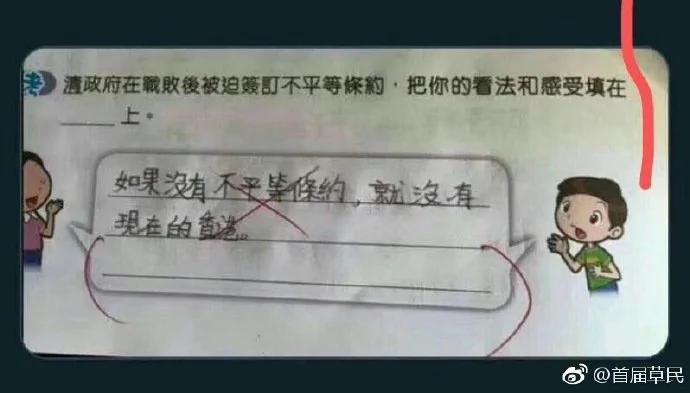 考 清政府在戰敗後被迫簽訂不平等條約，把你的看法和感受填在
_____上。
如果沒有不平等條約，就沒有
現在的香港。
@首届草民